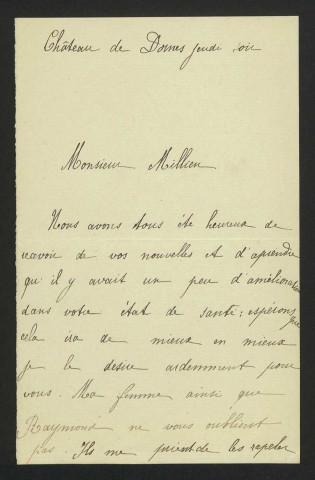 Château de Dornes jeudi soir
Monsieur Millien
Nous avons tous été heureux de
recevoir de vos nouvelles et d'aprendre
qu'il y avait un peu d'amélioration
dans votre état de santé ; espérons que
cela ira de mieux en mieux
je le desire ardemment pour
vous. Ma femme ainsi que
Raymond ne vous oublient
pas. Ils me prient de les rapeler